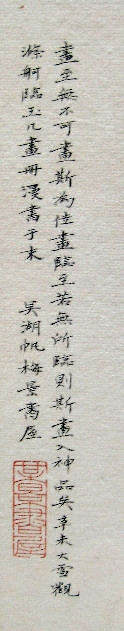 畫至無不可畫斯為佳畫臨至若無所臨則斯畫入神品矣辛未大雪觀
滌舸臨玉几畫冊漫書于末　吳湖帆梅景書屋
梅景書屋